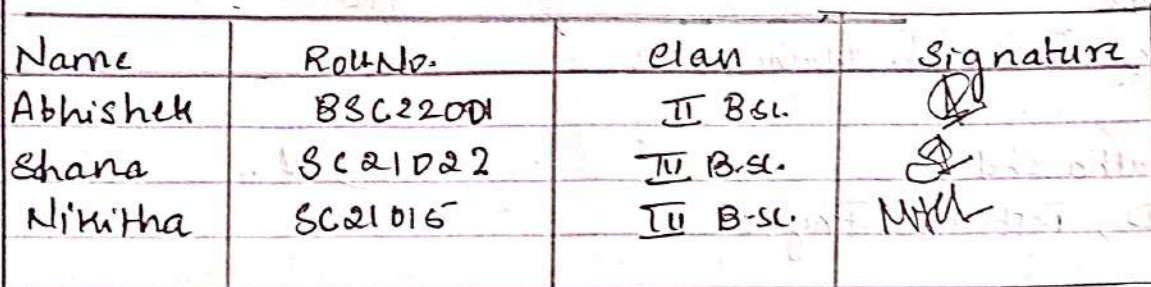 Name Roll No. Class Signature
Abhishek BSC22001 II BSc.
Shana SC21022 III B.Sc.
Nikitha SC21015 III B-Sc.